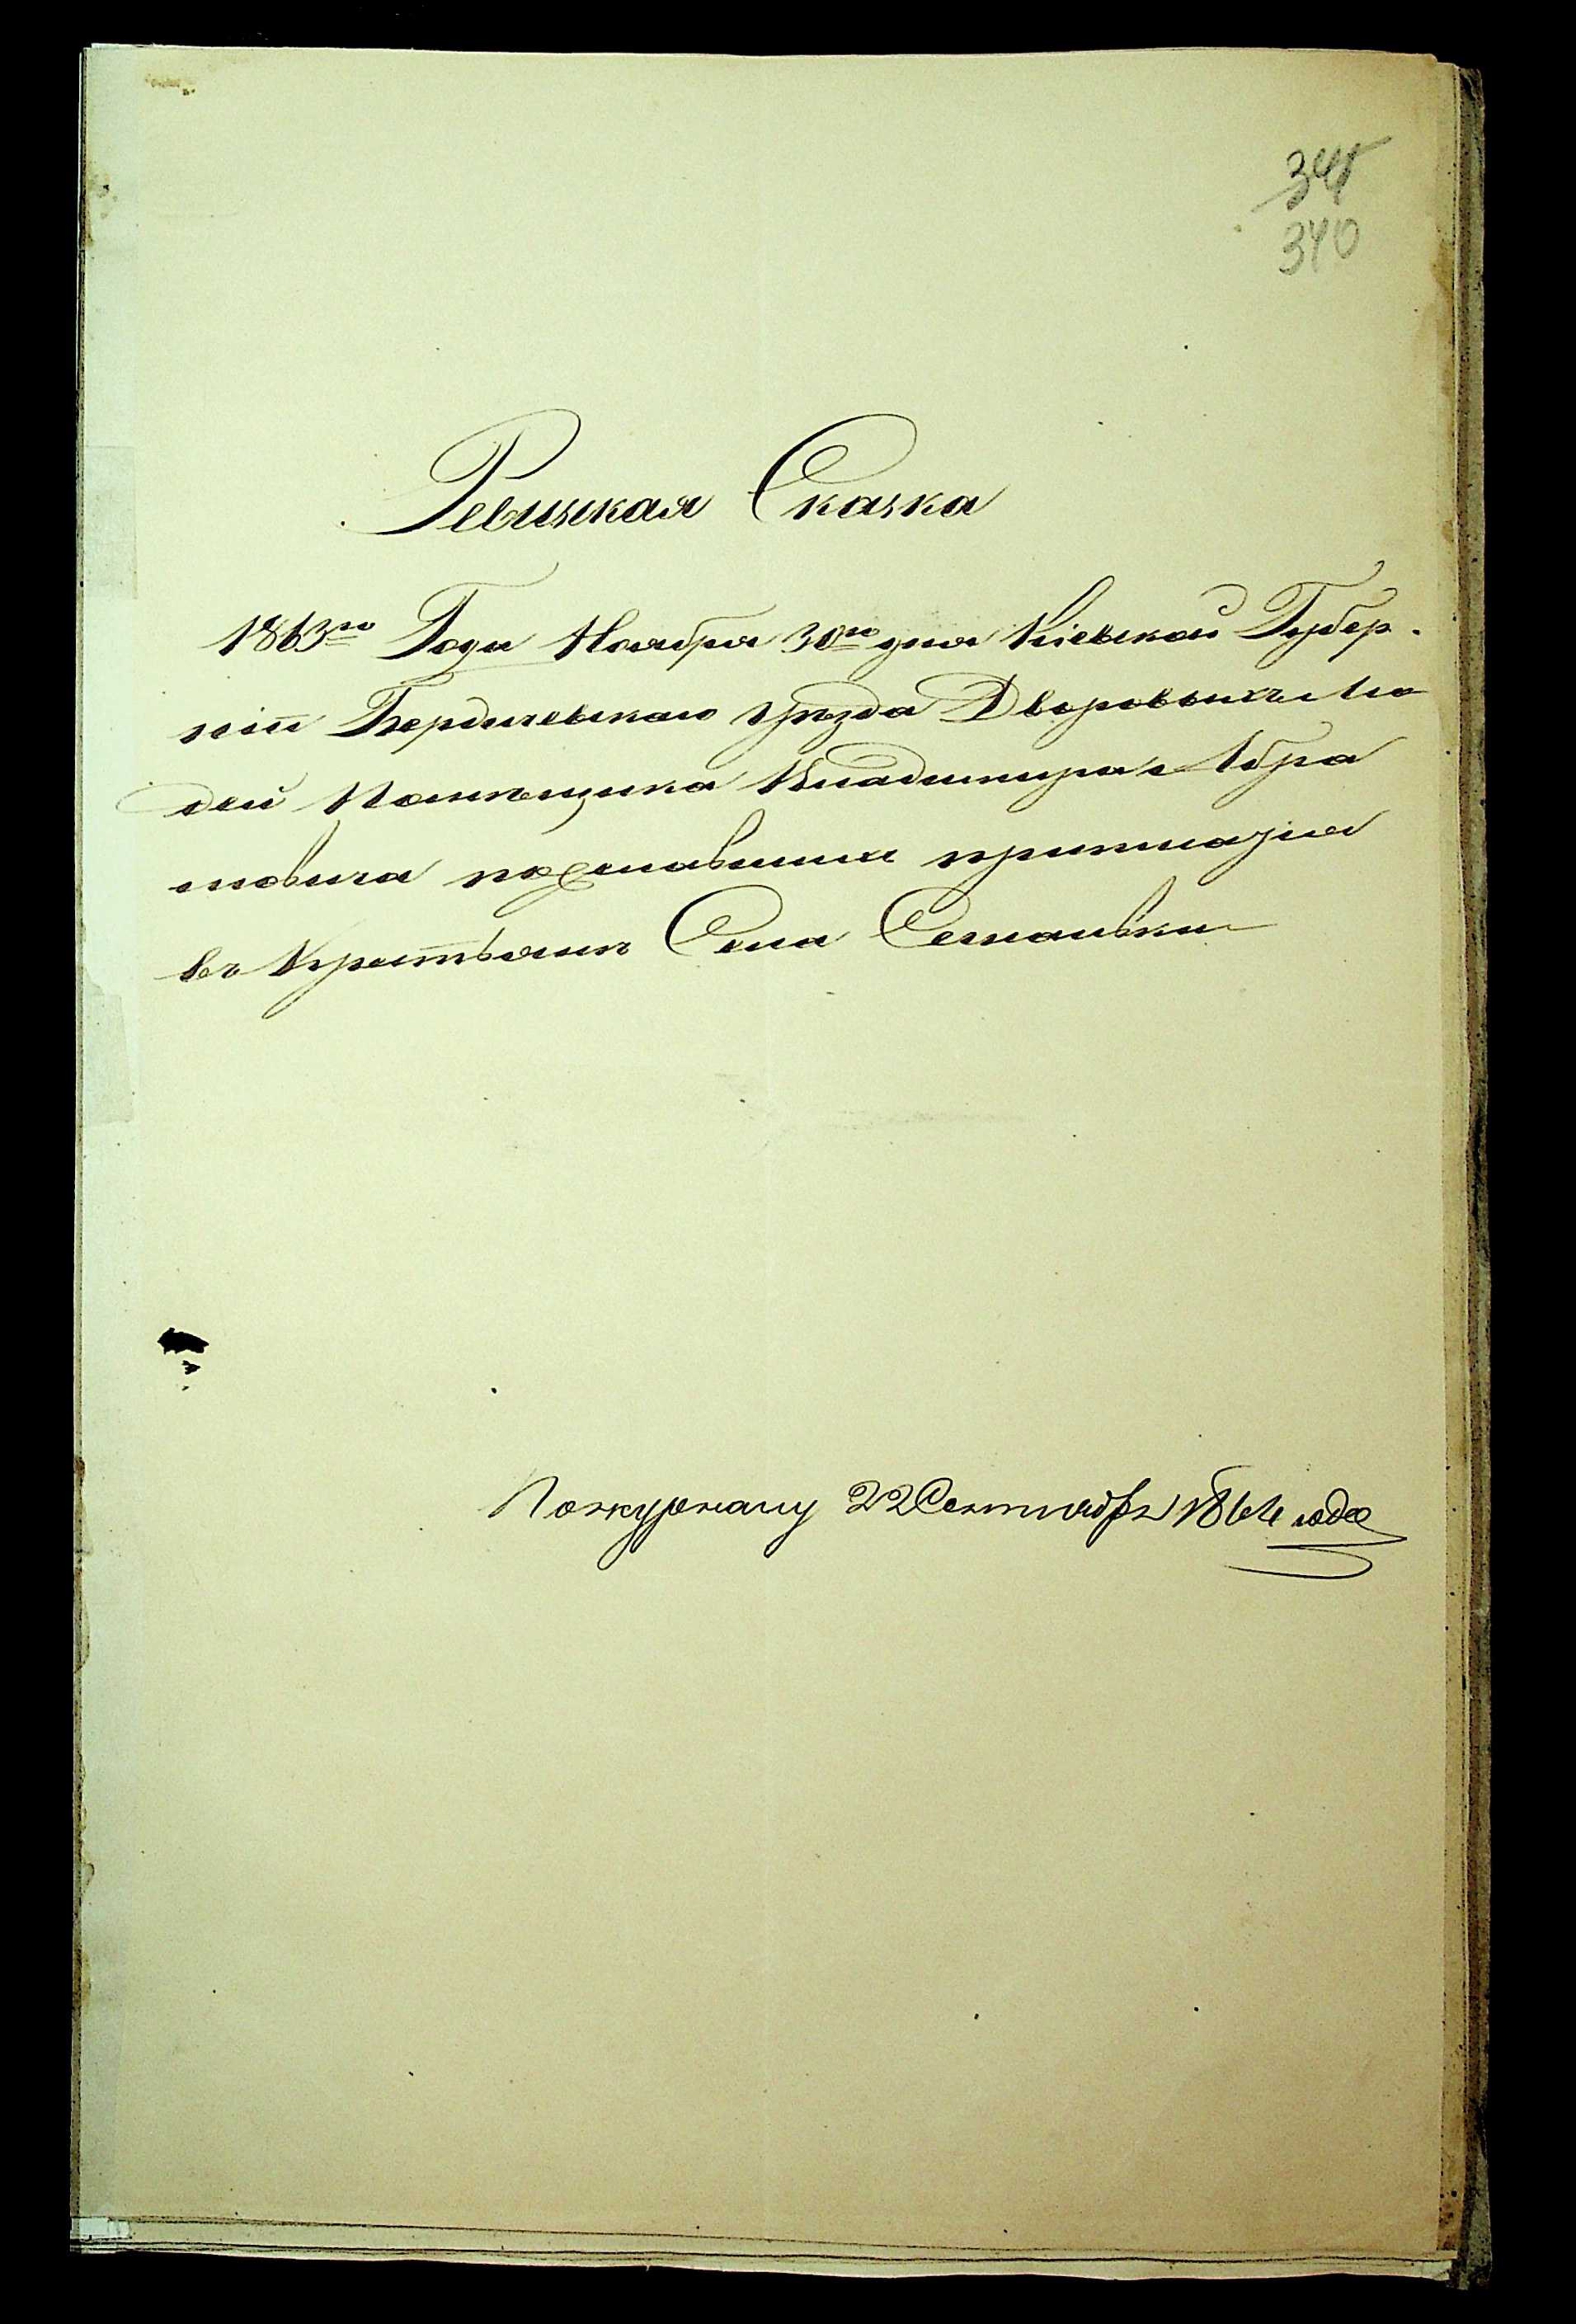 340
Ревизская Сказка
1863го Года Ноября 30го дня Кіевской Губер.
ніи Бердичевскаго уѣзда Дворовыхъ Лю
дей Помѣщика Владимира Абра
мовича пожелавшихъ приписаться
въ Крестьяне Села Семановки
По журналу 22 Сентября 1864 года